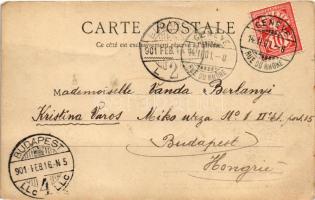 CARTE POSTALE
Ce côté est exclusivement réservé à l'adresse.
GENÈVE
RUE DU RHÔNE
GENÈVE
RUE DU RHÔNE
2
Mademoiselle Vanda Berlanyi
Kristina Varos Miko utcza Nº 1
Budapest
Hongrie
BUDAPEST
901 FEB.16.N5
4